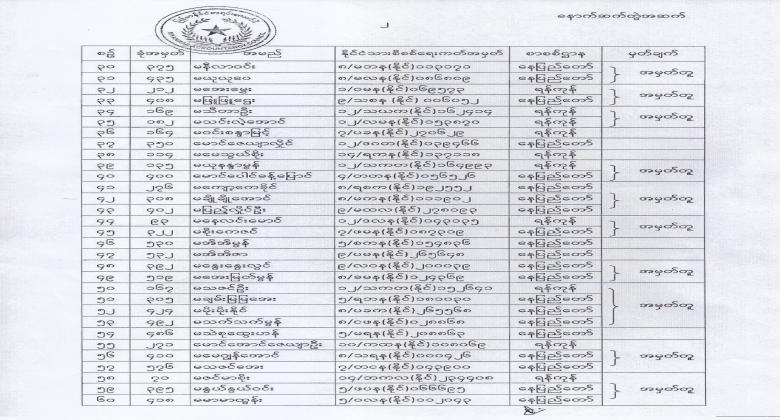 ၂
နောက်ဆက်တွဲအဆက်
စဉ် ခုံအမှတ် အမည် နိုင်ငံသားစိစစ်ရေးကတ်အမှတ် စာစစ်ဌာန မှတ်ချက်
၃၀ ၃၇၅ မနီလာဝင်း ၈/မတန(နိုင်)၁၁၃၀၇၀ နေပြည်တော်
၃၁ ၄၃၅ မယုယုဝေ ၈/မလန(နိုင်)၀၈၆၈၀၉ နေပြည်တော် အမှတ်တူ
၃၂ ၂၁၂ မအေးမွှေး ၁/ဝမန(နိုင်)၀၆၉၅၇၃ ရန်ကုန်
၃၃ ၄၀၈ မဖြူဖြူဌေး ၉/သစန(နိုင်)၀၀၆၀၅၂ နေပြည်တော် အမှတ်တူ
၃၄ ၁၆၉ မသီတာဦး ၁၂/သဃက(နိုင်)၁၆၂၄၁၄ ရန်ကုန်
၃၅ ၁၈၂ မသင်းလဲ့အောင် ၁၂/လမန(နိုင်)၁၅၃၈၇၀ ရန်ကုန် အမှတ်တူ
၃၆ ၁၆၄ မဝင်းစန္ဒာမြင့် ၇/ပခန(နိုင်)၂၇၀၆၂၉ ရန်ကုန်
၃၇ ၃၅၀ မောင်ဇေယျာလှိုင် ၁၂/ဒဂတ(နိုင်)၀၃၉၄၆၆ နေပြည်တော်
၃၈ ၁၁၄ မမေသွယ်စိုး ၁၄/ရကန(နိုင်)၁၃၇၁၁၈ ရန်ကုန်
၃၉ ၁၃၅ မယုနန္ဒာမွန် ၁၂/သကတ(နိုင်)၁၆၄၉၉၃ ရန်ကုန်
၄၀ ၄၀၀ မောင်ပေါင်ခန့်မြောင် ၄/တတန(နိုင်)၀၅၆၅၂၆ နေပြည်တော် အမှတ်တူ
၄၁ ၂၇၆ မကျော့ကေခိုင် ၈/ရစက(နိုင်)၁၉၂၅၅၂ နေပြည်တော်
၄၂ ၃၀၈ မချိုချိုအောင် ၈/မကန(နိုင်)၁၁၁၉၀၂ နေပြည်တော် အမှတ်တူ
၄၃ ၄၀၂ မပြည့်လှိုင်ဦး ၉/မထလ(နိုင်)၂၇၈၀၉၃ နေပြည်တော်
၄၄ ၉၃ မနေလင်းမောင် ၁၂/ဒလန(နိုင်)၀၄၃၀၃၅ ရန်ကုန်
၄၅ ၃၂၂ မစိုးကေဇင် ၇/ဖမန(နိုင်)၀၈၇၃၀၉ နေပြည်တော် အမှတ်တူ
၄၆ ၅၃၀ မအိအိမွန် ၅/စကန(နိုင်)၁၅၄၈၃၆ နေပြည်တော်
၄၇ ၅၃၂ မအိအိဇာ ၉/ပမန(နိုင်)၂၆၅၆၄၈ နေပြည်တော်
၄၈ ၃၉၂ မနွေးနွေးလွင် ၉/လဝန(နိုင်)၂၁၀၀၃၉ နေပြည်တော်
၄၉ ၅၁၉ မအေးမြတ်မွန် ၈/ခမန(နိုင်)၁၂၄၃၆၉ နေပြည်တော် အမှတ်တူ
၅၀ ၁၆၇ မသဇင်ဦး ၁၂/သကတ(နိုင်)၁၅၂၆၄၁ ရန်ကုန်
၅၁ ၃၀၅ မချမ်းမြမြအေး ၅/ရဘန(နိုင်)၁၈၁၀၃၀ နေပြည်တော်
၅၂ ၄၂၄ မမိုးမိုးနိုင် ၈/ပခက(နိုင်)၂၆၅၅၆၈ နေပြည်တော် အမှတ်တူ
၅၃ ၄၉၂ မသက်သက်မွန် ၈/ငဖန(နိုင်)၀၂၈၈၆၈ နေပြည်တော်
၅၄ ၄၈၆ မသဲစုထွေးဟန် ၅/မရန(နိုင်)၂၀၈၈၆၃ နေပြည်တော်
၅၅ ၂၇၁ မောင်အောင်ဇေယျာဦး ၁၀/ကထန(နိုင်)၁၀၈၀၆၉ ရန်ကုန်
၅၆ ၄၁၀ မမေဂျွန်အောင် ၈/သရန(နိုင်)၀၀၀၄၂၆ နေပြည်တော် အမှတ်တူ
၅၇ ၅၇၆ မသဇင်အေး ၇/တငန(နိုင်)၀၄၃၉၀၀ နေပြည်တော်
၅၈ ၇၀ မဇင်မာဖိုး ၁၄/ဘကလ(နိုင်)၂၃၄၄၀၈ ရန်ကုန်
၅၉ ၃၉၅ မနွယ်နွယ်ဝင်း ၅/ဖပန(နိုင်)၀၆၆၆၉၅ နေပြည်တော် အမှတ်တူ
၆၀ ၄၁၈ မမာမာထွန်း ၅/ဝလန(နိုင်)၀၀၂၀၄၃ နေပြည်တော်